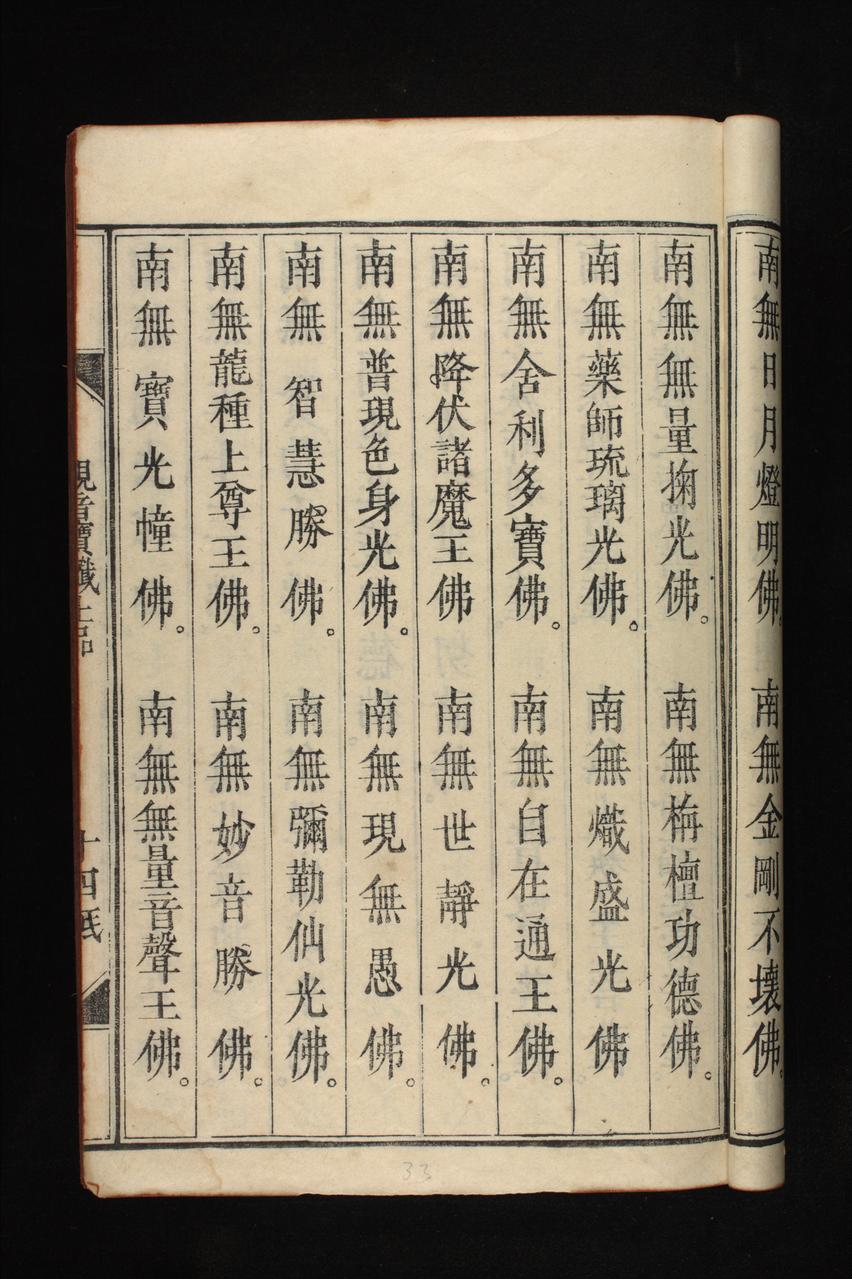 南無日月燈明佛。南無金剛不壞佛。
南無無量掬光佛。南無栴檀功德佛。
南無藥師琉璃光佛。南無熾盛光佛
南無舍利多寶佛。南無自在通王佛。
南無降伏諸魔王佛南無世靜光佛。
南無普現色身光佛。南無現無愚佛。
南無智慧勝佛。南無彌勒仙光佛。
南無龍種上尊王佛。南無妙音勝佛。
南無寶光幢佛。南無無量音聲王佛。
觀音寶懺上品
十四紙
33